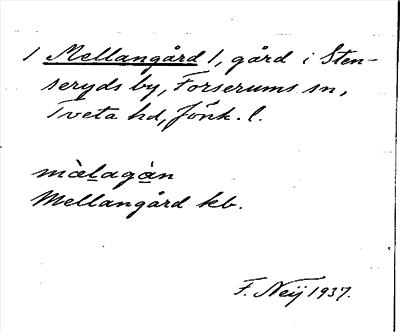 / Mellangård /, gård i Sten-
seryds by, Forserums sn,
Tveta hd, Jönk. l.
mælagàn
Mellangård kb.
F. Neij 1937.